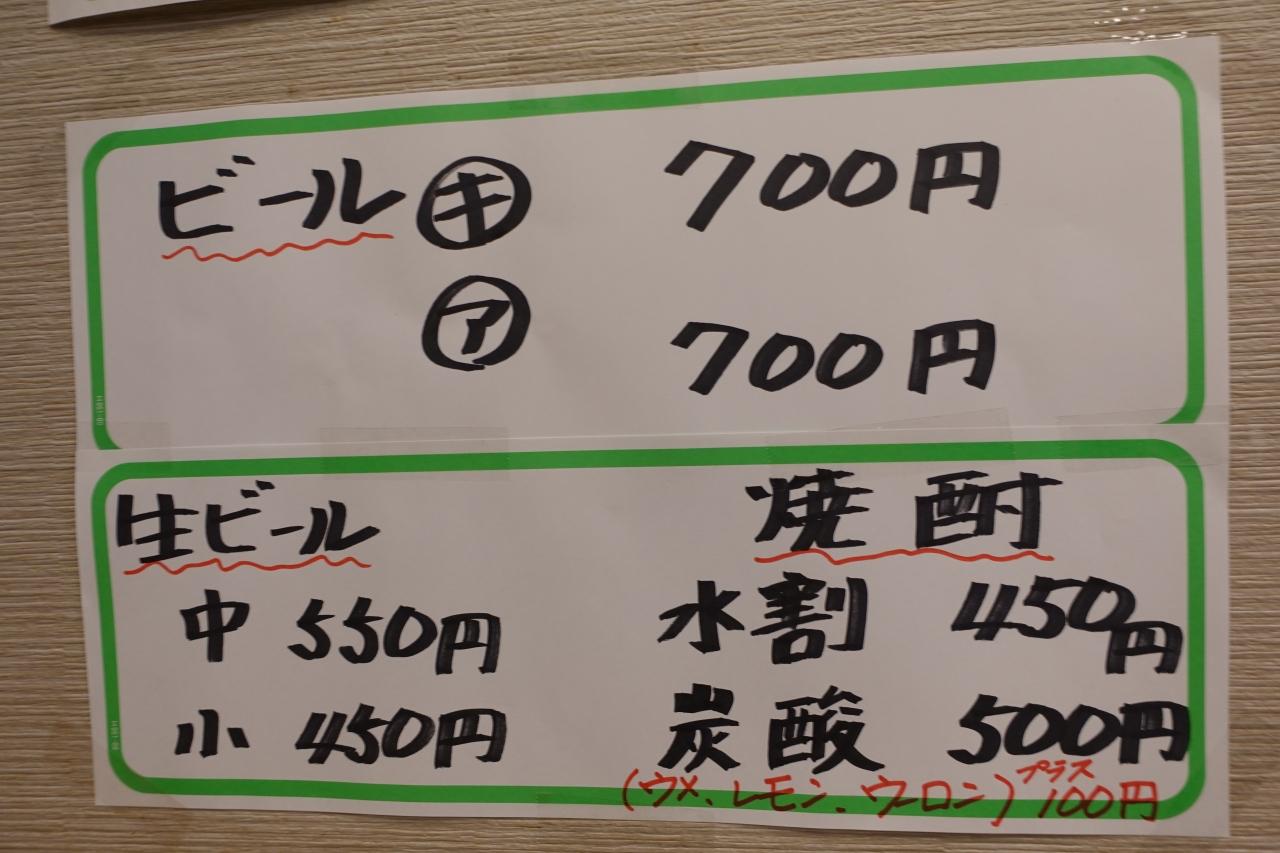 ビール㋖ 700円
㋐ 700円
生ビール
中 550円
小 450円
焼酎
水割 450円
炭酸 500円
(ウメ、レモン、ウーロン)プラス100円